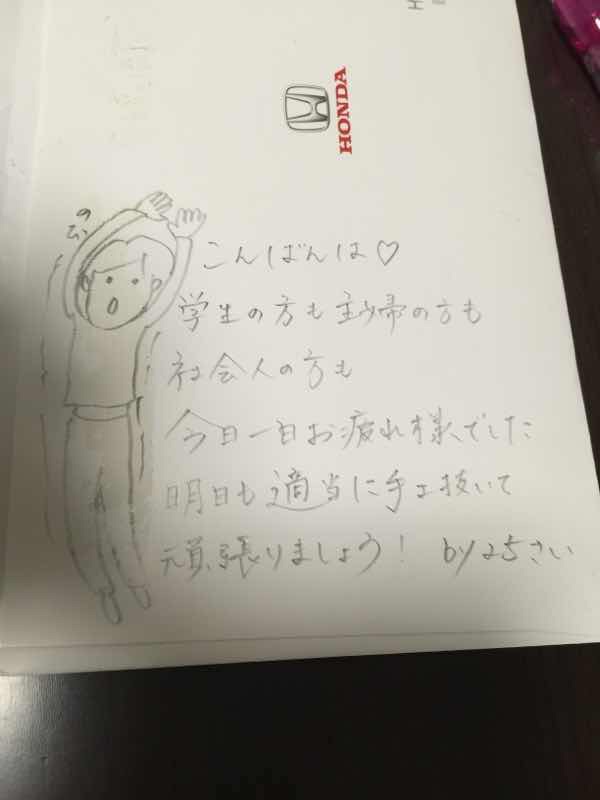 HONDA
こんばんは♡
学生の方も主婦の方も
社会人の方も
今日一日お疲れ様でした
明日も適当に手を抜いて
頑張りましょう! by25さい